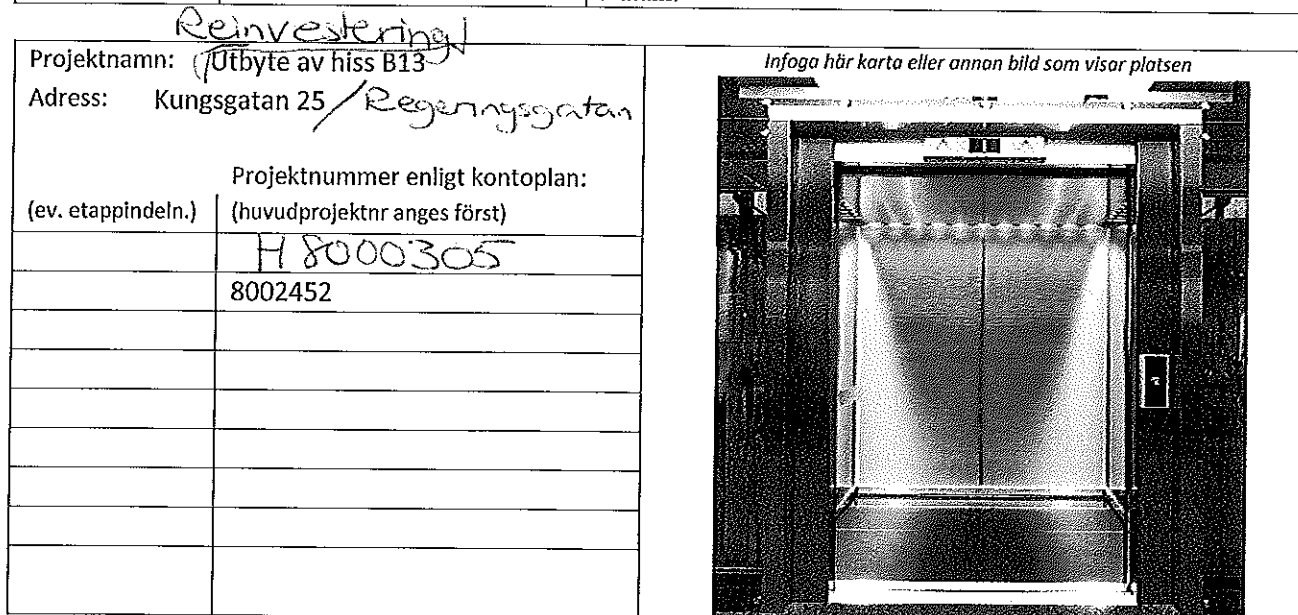 Reinvestering
Projektnamn: Utbyte av hiss B13
Adress: Kungsgatan 25 / Regeringsgatan
Projektnummer enligt kontoplan:
(ev. etappindeln.) (huvudprojektnr anges först)
H 8000305
8002452
Infoga här karta eller annan bild som visar platsen